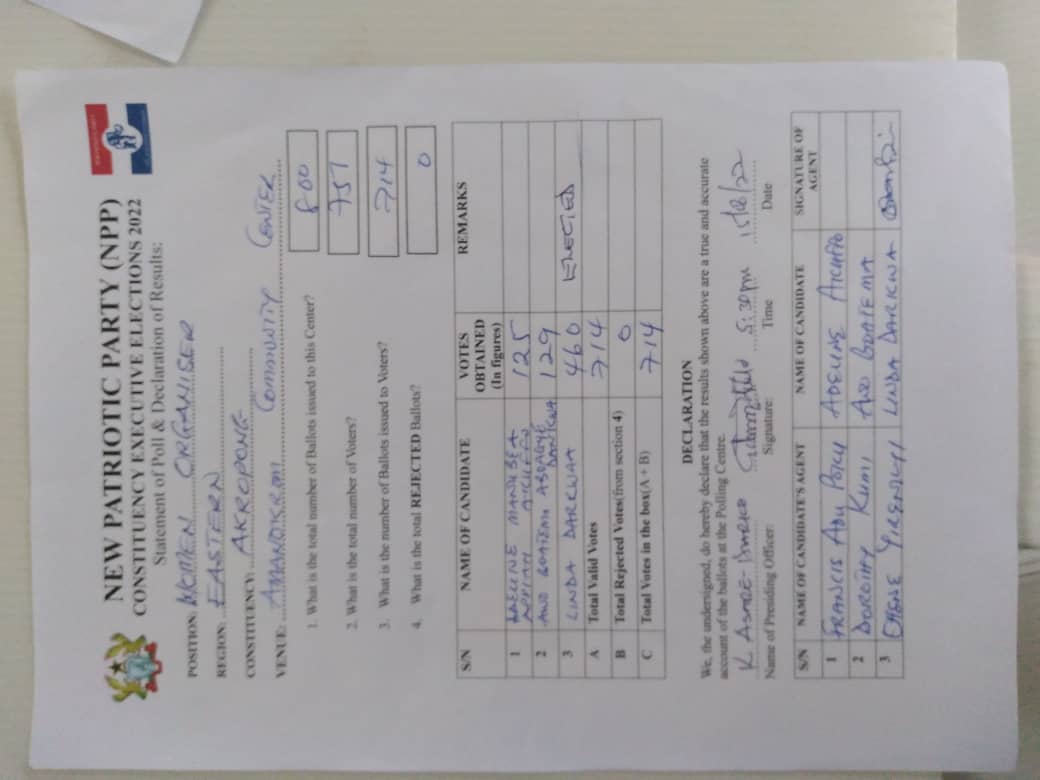 NEW PATRIOTIC PARTY (NPP)
CONSTITUENCY EXECUTIVE ELECTIONS 2022
Statement of Poll & Declaration of Results:
POSITION: WOMEN ORGANISER
REGION: EASTERN
CONSTITUENCY: AKROPONG
VENUE: AMANOKROM COMMUNITY CENTER
1. What is the total number of Ballots issued to this Center? 800
2. What is the total number of Voters? 757
3. What is the number of Ballots issued to Voters? 714
4. What is the total REJECTED Ballots? 0
S/N NAME OF CANDIDATE VOTES OBTAINED (In figures) REMARKS
1 125
2 129
3 LINDA DARKWAA 460 ELECTED
A Total Valid Votes 714
B Total Rejected Votes(from section 4) 0
C Total Votes in the box(A + B) 714
DECLARATION
We, the undersigned, do hereby declare that the results shown above are a true and accurate
account of the ballots at the Polling Centre.
K. 5:30pm 15/8/22
Name of Presiding Officer: Signature: Time Date
S/N NAME OF CANDIDATE'S AGENT NAME OF CANDIDATE SIGNATURE OF AGENT
1 FRANCIS ADU POKU ADELINE
2 DOROTHY KUMI BOATEMA
3 LINDA DARKWA